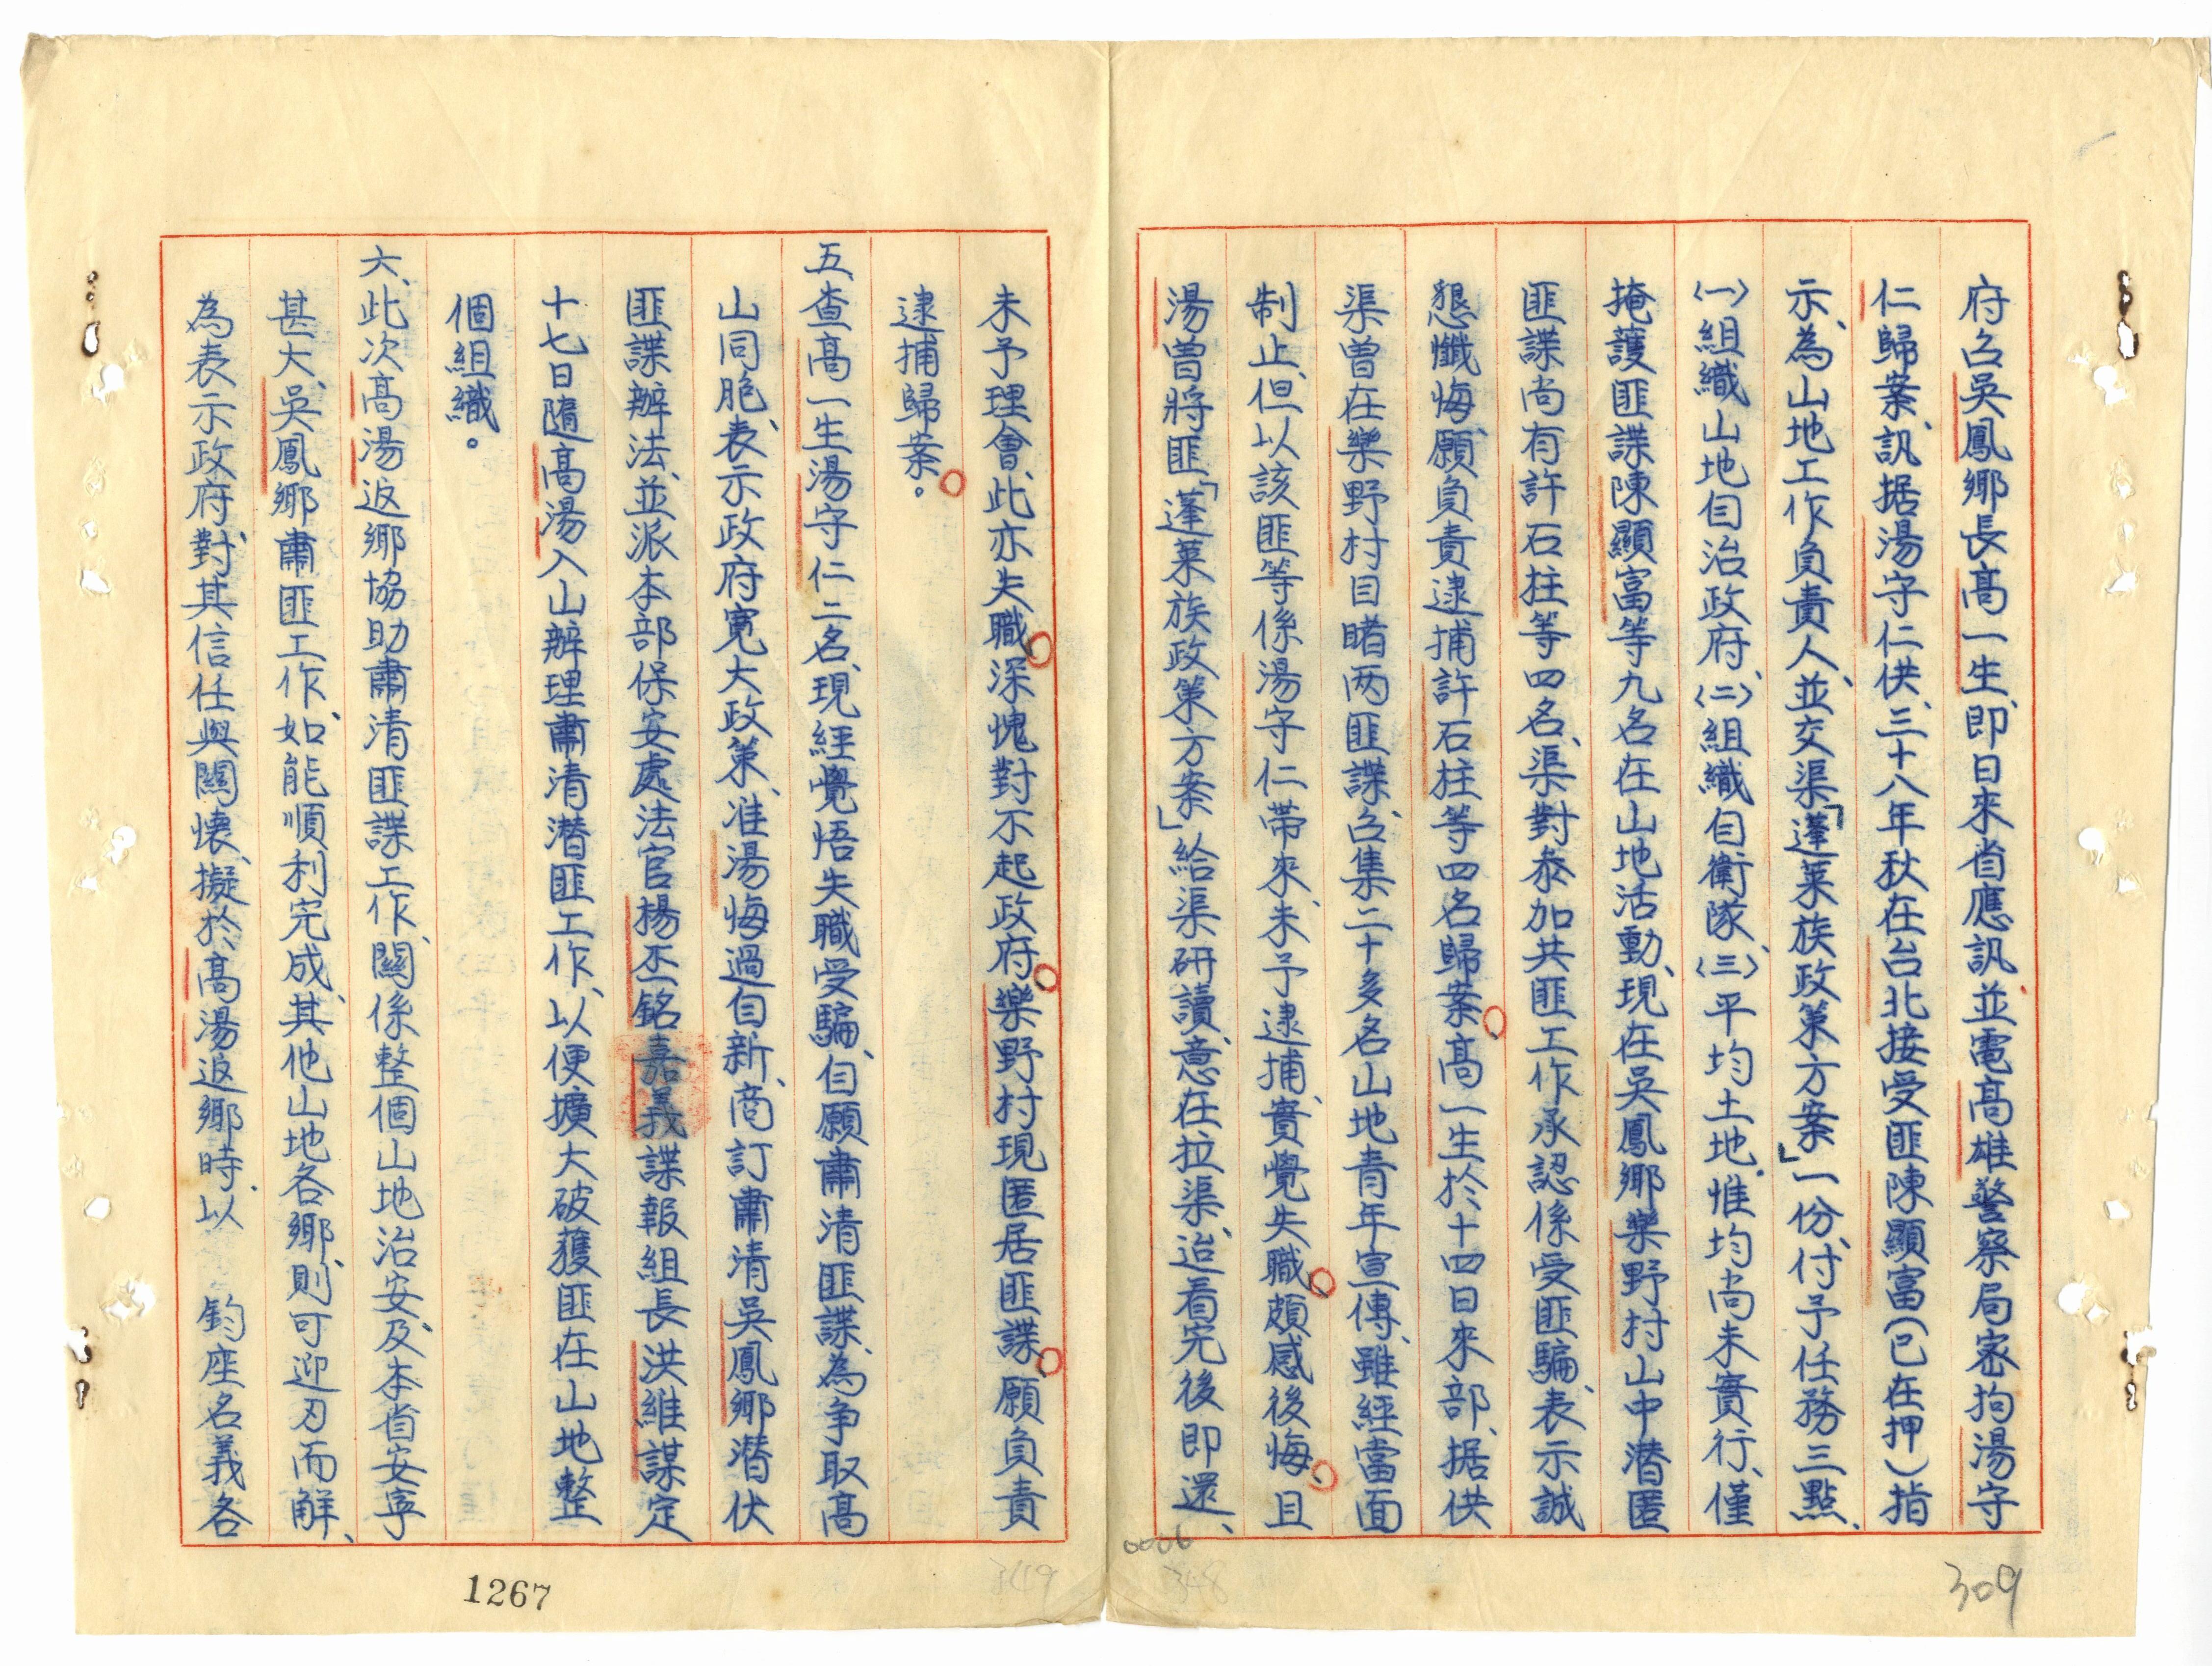 府召吳鳳鄉長高一生、即日來省應訊、並電高雄警察局密拘湯守
仁歸案、訊据湯守仁供、三十八年秋在台北接受匪陳顯富(已在押)指
示、為山地工作負責人、並交渠「蓬萊族政策方案」一份、付予任務三點、
〈一〉組織山地自治政府、〈二〉組織自衛隊、〈三〉平均土地、惟均尚未實行、僅
掩護匪諜陳顯富等九名在山地活動、現在吳鳳鄉樂野村山中潛匿
匪諜尚有許石柱等四名、渠對參加共匪工作承認係受匪騙、表示誠
懇懺悔、願負責逮捕許石柱等四名歸案、高一生於十四日來部、据供
渠曾在樂野村目睹两匪諜、召集二十多名山地青年宣傳、雖經當面
制止、但以該匪等係湯守仁帶來、未予逮捕、實覺失職、頗感後悔、且
湯曾將匪「蓬萊族政策方案」給渠研讀、意在拉渠、迨看完後即還、
未予理會、此亦失職、深愧對不起政府、樂野村現匿居匪諜、願負責
逮捕歸案。
五、查高一生湯守仁二名、現經覺悟失職受騙、自願肅清匪諜、為争取高
山同胞、表示政府寬大政策、准湯悔過自新、商訂肅清吳鳳鄉潛伏
匪諜辦法、並派本部保安處法官楊丕銘嘉義諜報組長洪維謀定
十七日隨高湯入山辦理肅清潛匪工作、以便擴大破獲匪在山地整
個組織。
六、此次高湯返鄉協助肅清匪諜工作、關係整個山地治安及本省安寧
甚大、吳鳳鄉肅匪工作、如能順利完成、其他山地各鄉、則可迎刃而解、
為表示政府對其信任與關懷、擬於高湯返鄉時、以 鈞座名義各
309
0006
348
349
1267